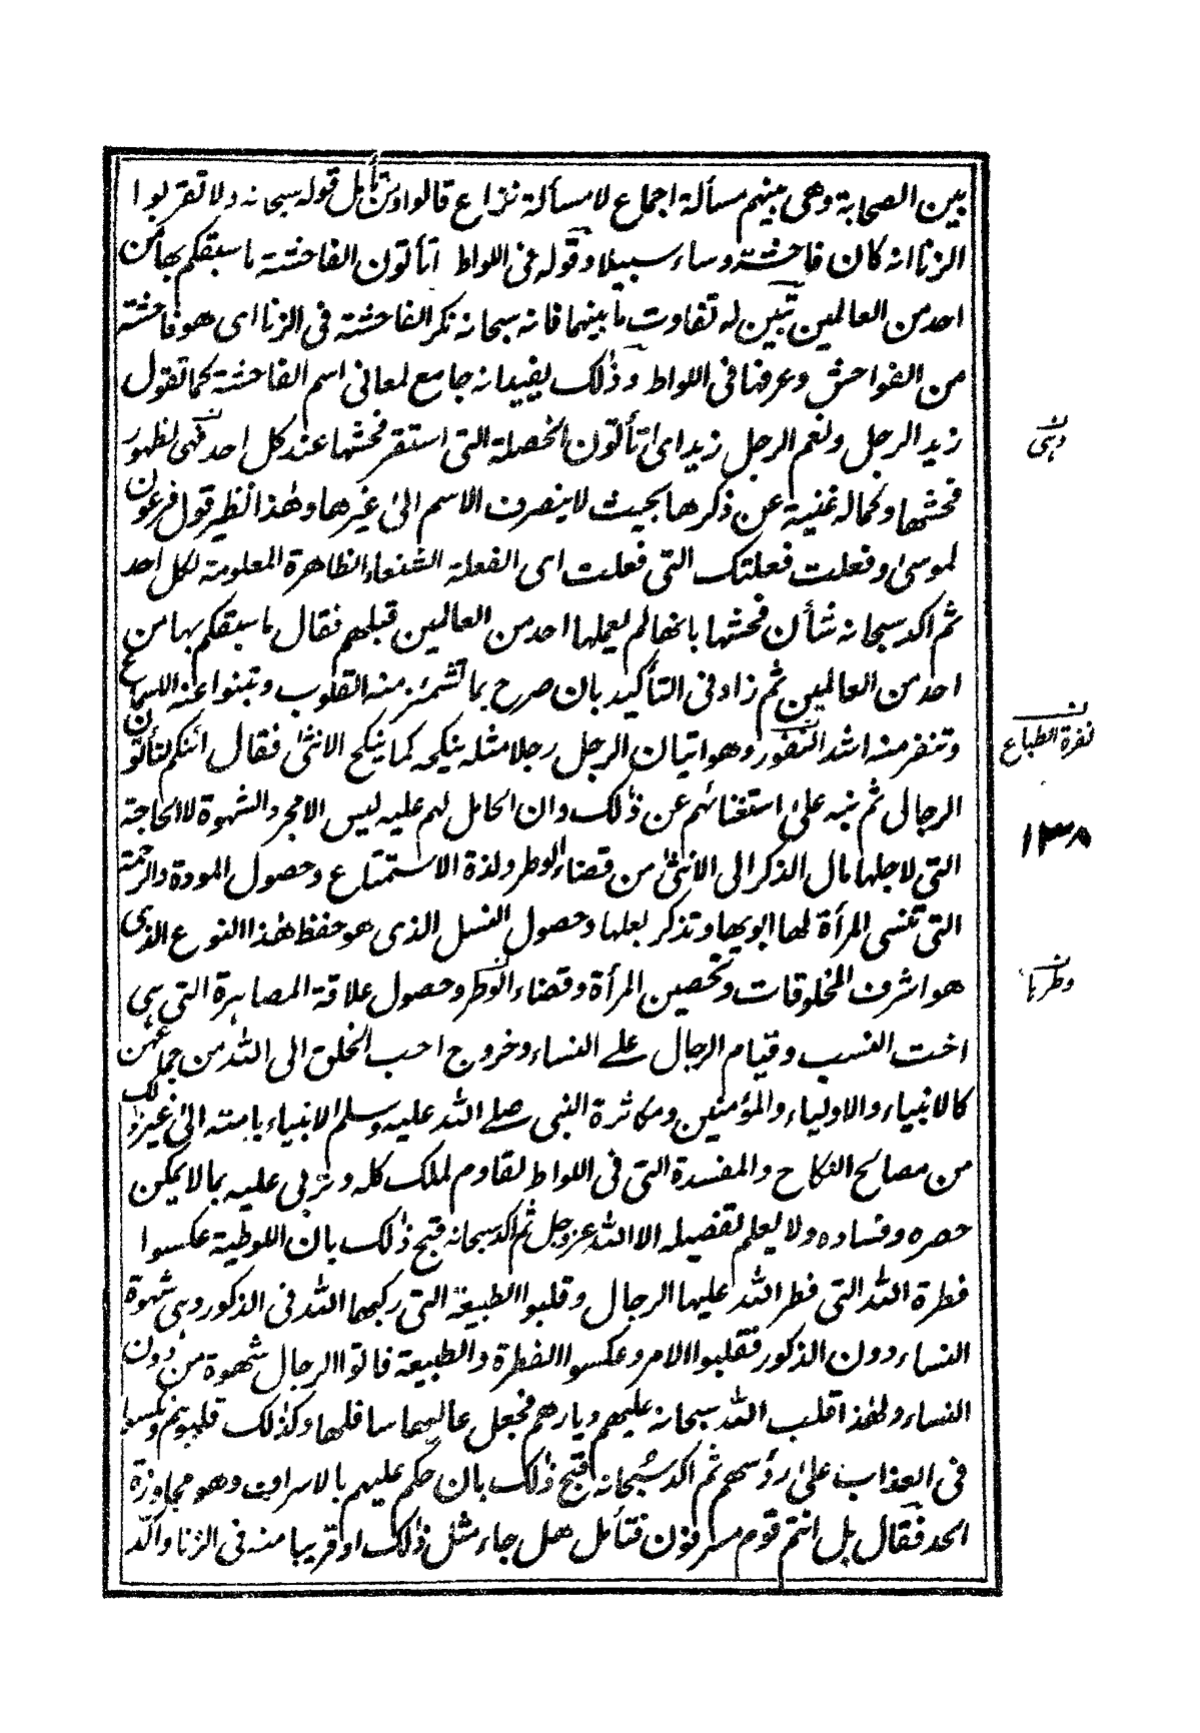 بين الصحابة وهى بينهم مسألة اجماع لا مسألة نزاع قالوا ومن تأمل قوله سبحانه ولا تقربوا
الزنا انه كان فاحشة وساء سبيلا وقوله فى اللواط اتأتون الفاحشة ما سبقكم بها من
احد من العالمين تبين له تفاوت ما بينهما فانه سبحانه نكر الفاحشة فى الزنا اى هو فاحشة
من الفواحش وعرفها فى اللواط وذلك يفيد انه جامع لمعانى اسم الفاحشة كما تقول
زيد الرجل ونعم الرجل زيد اى اتأتون الخصلة التى استقر فحشها عند كل احد فهى لظهور
فحشها وكماله غنية عن ذكرها بحيث لا ينصرف الاسم الى غيرها وهذا نظير قول فرعون
لموسى وفعلت فعلتك التى فعلت اى الفعلة الشنعاء الظاهرة المعلومة لكل احد
ثم اكد سبحانه شأن فحشها بانها لم يعملها احد من العالمين قبلهم فقال ما سبقكم بها من
احد من العالمين ثم زاد فى التأكيد بان صرح بما تشمئز منه القلوب وتنبوا عنه الاسماع
وتنفر منه اشد النفور وهو اتيان الرجل رجلا مثله ينكحه كما ينكح الانثى فقال ائنكم لتأتون
الرجال ثم نبه على استغنائهم عن ذلك وان الحامل لهم عليه ليس الا مجرد الشهوة لا الحاجة
التى لاجلها مال الذكر الى الانثى من قضاء الوطر ولذة الاستمتاع وحصول المودة والرحمة
التى تنسى المرأة لها ابويها وتذكر بعلها وحصول النسل الذى هو حفظ هذا النوع الذى
هو اشرف المخلوقات وتحصين المرأة وقضاء الوطر وحصول علاقة المصاهرة التى هى
اخت النسب وقيام الرجال على النساء وخروج احب الخلق الى الله من جماعهن
كالانبياء والاولياء والمؤمنين ومكاثرة النبى صلى الله عليه وسلم الانبياء بامته الى غير ذلك
من مصالح النكاح والمفسدة التى فى اللواط تقاوم لملك كله وتربى عليه بما لا يمكن
حصره وفساده ولا يعلم تفصيله الا الله عز وجل ثم اكد سبحانه قبح ذلك بان اللوطية عكسوا
فطرة الله التى فطر الله عليها الرجال وقلبوا الطبيعة التى ركبها الله فى الذكور وهى شهوة
النساء دون الذكور فقلبوا الامر وعكسوا الفطرة والطبيعة فاتوا الرجال شهوة من دون
النساء ولهذا قلب الله سبحانه عليهم ديارهم فجعل عاليها سافلها وكذلك قلبوهم ونكسوا
فى العذاب على رؤسهم ثم اكد سبحانه قبح ذلك بان حكم عليهم بالاسراف وهو مجاوزة
الحد فقال بل انتم قوم مسرفون فتأمل هل جاء مثل ذلك او قريبا منه فى الزنا واكد
وهى
نفرة الطباع
١٣٨
وطرها